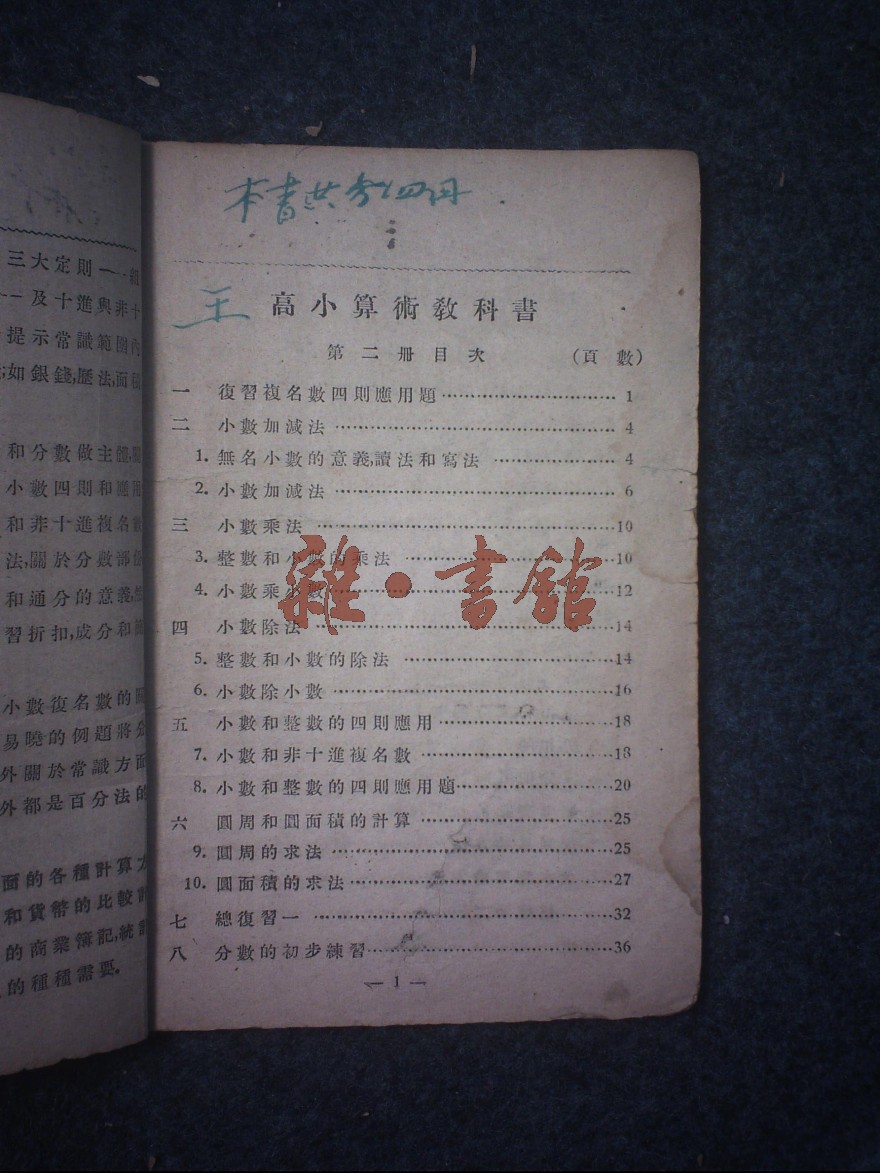 三大定則一
及十進與非十
提示常識範圍內
如銀錢,歷法,面積
和分數做主體,關
小數四則和應用
和非十進複名數
法,關於分數部份
和通分的意義,
習折扣,成分和
小數復名數的
易曉的例題將分
外關於常識方面
外都是百分法的
面的各種計算
和貨幣的比較
的商業簿記,統
的種種需要.
本書共分四冊
王
高小算術教科書
第二冊目次 (頁數)
一 復習複名數四則應用題 1
二 小數加減法 4
1. 無名小數的意義,讀法和寫法 4
2. 小數加減法 6
三 小數乘法 10
3. 整數和小數的乘法 10
4. 小數乘小數 12
四 小數除法 14
5. 整數和小數的除法 14
6. 小數除小數 16
五 小數和整數的四則應用 18
7. 小數和非十進複名數 18
8. 小數和整數的四則應用題 20
六 圓周和圓面積的計算 25
9. 圓周的求法 25
10. 圓面積的求法 27
七 總復習一 32
八 分數的初步練習 36
— 1 —
雜·書館